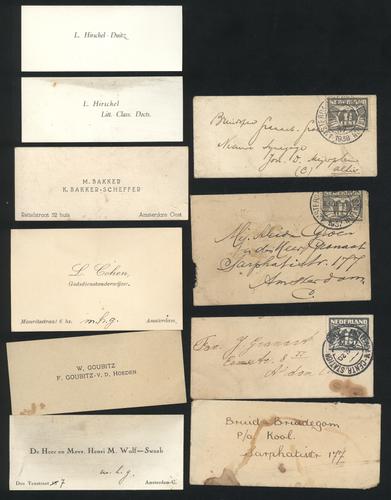 L. Hirschel-Duitz
L. Hirschel
Litt. Class. Docts.
M. BAKKER
K. BAKKER-SCHEFFER
Retiefstraat 112 huis
Amsterdam Oost
L. Cohen,
Godsdienstonderwijzer.
Mauritsstraat 6 hs.
m.h.g.
Amsterdam,
W. GOUBITZ
F. GOUBITZ-V. D. HOEDEN
De Heer en Mevr. Henri M. Wolf—Swaab
m.h.g.
Den Texstraat 7
Amsterdam-C.
NEDERLAND
Nieuwe Synagoge
Jon. D. Meijerplein
(C)
NEDERLAND
Sarphatistr. 177
Amsterdam
C.
NEDERLAND
Fam. J. Granaat
A'dam
Bruid & Bruidegom
p/a Kool.
Sarphatistr 177